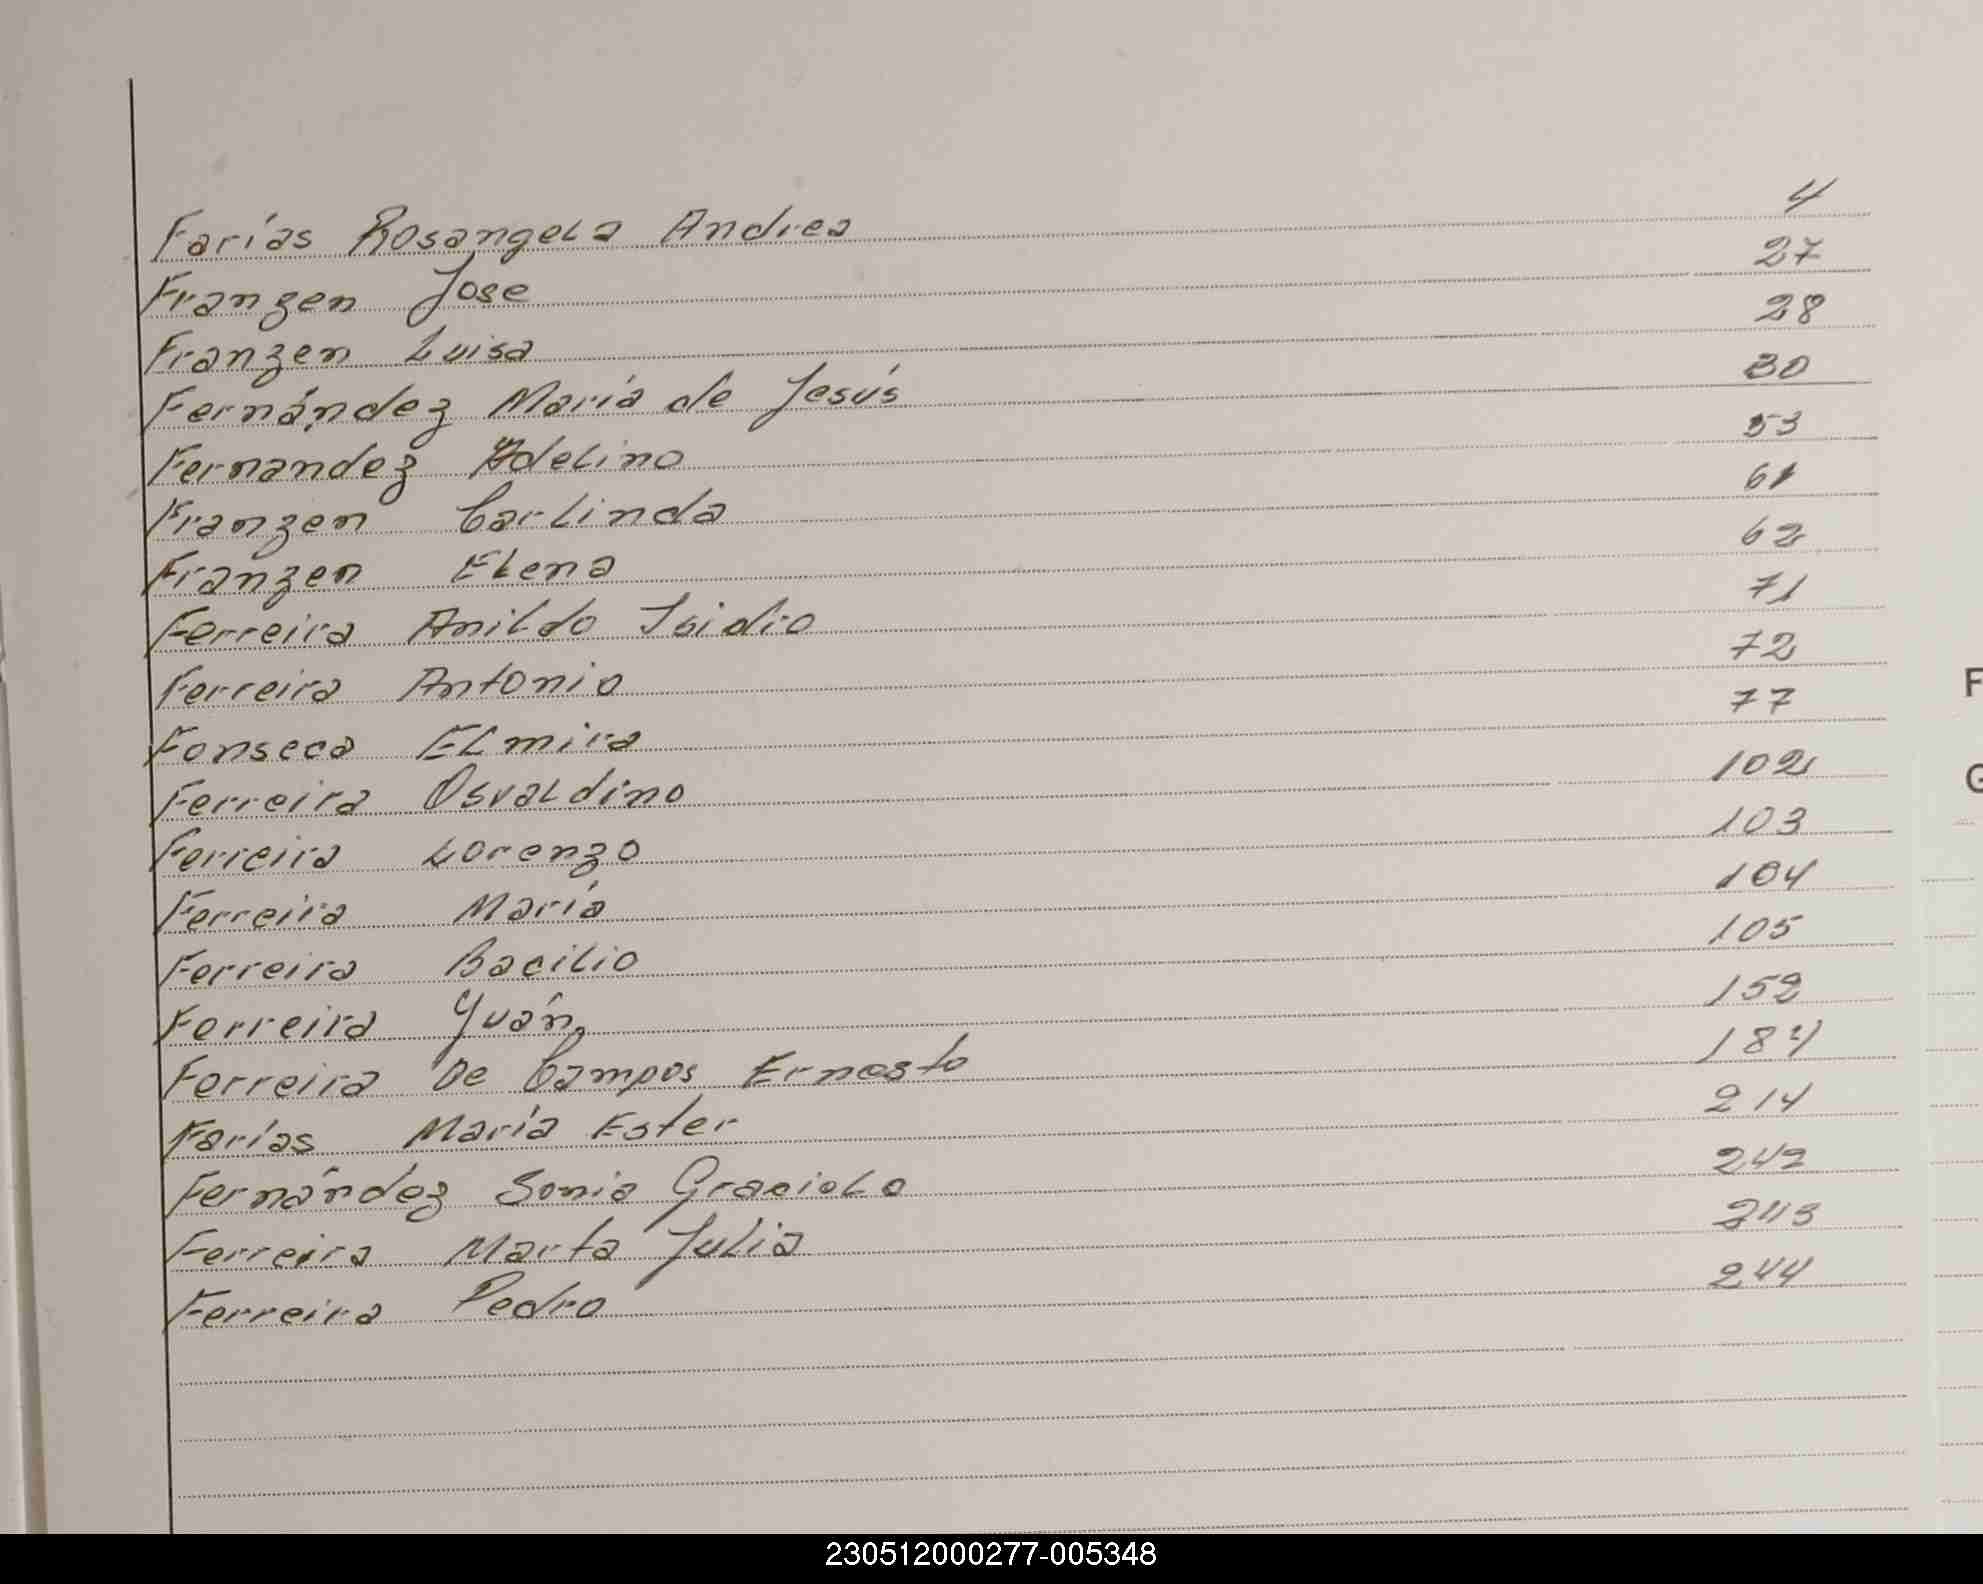 Farías Rosangela Andrea 4
Franzen Jose 27
Franzen Luisa 28
Fernández María de Jesús 30
Fernandez Adelino 53
Franzen Carlinda 61
Franzen Elena 62
Ferreira Anildo Isidio 71
Ferreira Antonio 72
Fonseca Elmira 77
Ferreira Osvaldino 102
Ferreira Lorenzo 103
Ferreira María 104
Ferreira Bacilio 105
Ferreira Yván 152
Ferreira De Campos Ernesto 184
Farías María Ester 214
Fernández Sonia Graciela 242
Ferreira Marta Julia 243
Ferreira Pedro 244
F
G
230512000277-005348